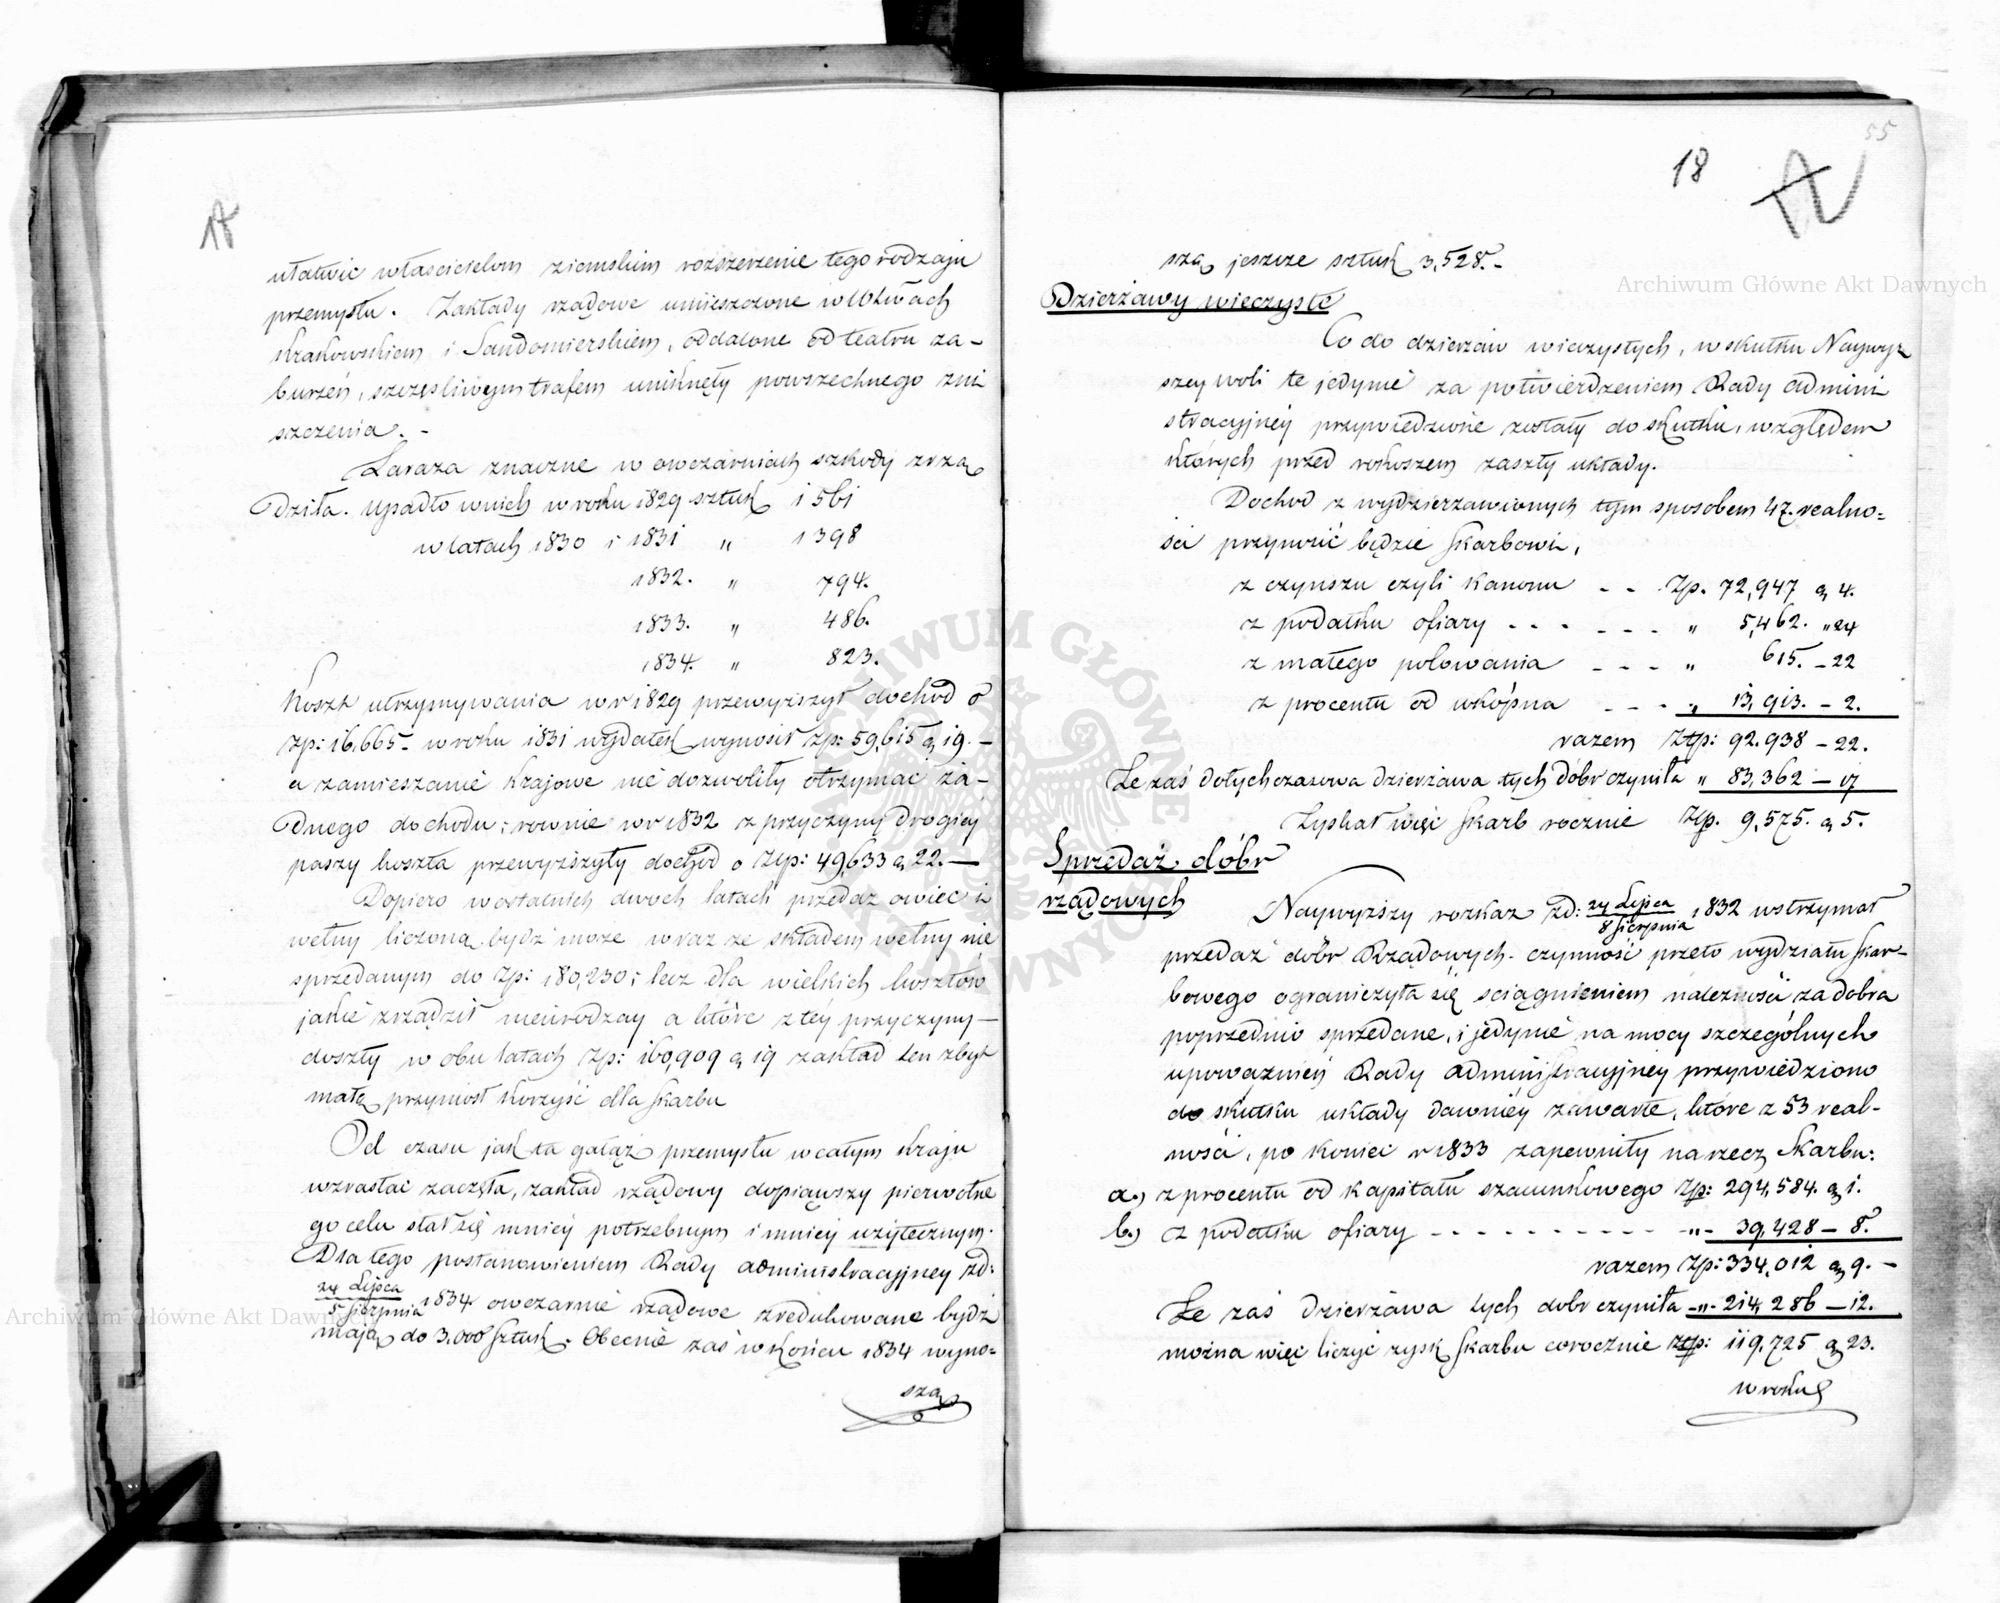 ułatwić właścicielom ziemskim rozszerzenie tego rodzaju
przemysłu. Zakłady rządowe umieszczone w Wtwach
krakowskiem i Sandomierskiem, oddalone od teatru za-
burzeń, szczęśliwym trafem uniknęły powszechnego zni
szczenia. -
Zaraza znaczne w owczarniach szkody zrzą
dziła. Upadło w nich w roku 1829 sztuk 1561
w latach 1830 i 1831 " 1398
1832. " 794.
1833. " 486.
1834. " 823.
Koszt utrzymywania w r 1829 przewyższył dochód o
Zp: 16,665- w roku 1831 wydatek wynosił Zp: 59,615 g 19.-
a zamieszanie krajowe nie dozwoliły otrzymać ża-
dnego dochodu; równie w r 1832 z przyczyny drogiej
paszy koszta przewyższyły dochód o Złp: 49,633 g 22.—
Dopiero w ostatnich dwoch latach przedaż owiec i
wełny liczoną bydź może wraz ze składem wełny nie
sprzedanym do Zp: 180,230; lecz dla wielkich kosztów
jakie zrządził nieurodzay a które z téy przyczyny-
doszły w obu latach Zp: 160,909 g 19 zakład ten zbyt
małą przyniosł korzyść dla Skarbu
Od czasu jak ta gałąź przemysłu w całym kraju
wzrastać zaczęła, zakład rządowy dopiąwszy pierwotne
go celu stał się mniey potrzebnym i mniey użytecznym.
Dla tego postanowieniem Rady administracyjney zd:
24 Lipca
5 Sierpnia 1834 owczarnie rządowe zredukowane bydź
mają do 3.000 Sztuk. Obecnie zaś w końcu 1834 wyno-
szą
18
55
szą jeszcze sztuk 3,528.-
Dzierżawy wieczyste
Co do dzierżaw wieczystych, w skutku Naywyż
szey woli te jedynie za potwierdzeniem Rady admini
stracyjnéy przywiedzione zostały do skutku, względem
których przed rokoszem zaszły układy.
Dochod z wydzierzawionych tym sposobem 47. realno=
ści przynosić będzie Skarbowi,
z czynszu czyli kanonu - - Złp. 72,947 g 4.
z podatku ofiary - - - - - - " 5,462. " 24
z małego polowania - - - " 615. - 22
z procentu od wkópna - - - " 13,913. - 2.
razem Złp: 92.938 - 22.
Że zaś dotychczasowa dzierżawa tych dóbr czyniła " 83,362 - 17
Zyskał więc Skarb rocznie Złp. 9,575. g 5.
Sprzedaż dóbr
rządowych
Naywyższy rozkaz zd: 24 Lipca
8 Sierpnia 1832 wstrzymał
przedaż dóbr Rządowych. czynność przeto wydziału Skar-
bowego ograniczyła się sciągnieniem należności za dobra
poprzednio sprzedane, i jedynie na mocy szczególnych
upoważnień Rady Administracyjnéy przywiedziono
do skutku układy dawniéy zawarte, które z 53 real-
ności, po koniec r 1833 zapewniły na rzecz Skarbu:
a.) z procentu od kapitału szacunkowego Złp: 294,584. g 1.
b.) z podatku ofiary - - - - - - - - - - - " - 39,428 - 8.
razem Złp: 334,012 g 9. -
Że zaś dzierżawa tych dobr czyniła - " - 214,286 - 12.
można więc liczyć zysk Skarbu corocznie Złp: 119,725 g 23.
w roku
Archiwum Główne Akt Dawnych
Archiwum Główne Akt Dawnych
ARCHIWUM GŁÓWNE AKT DAWNYCH